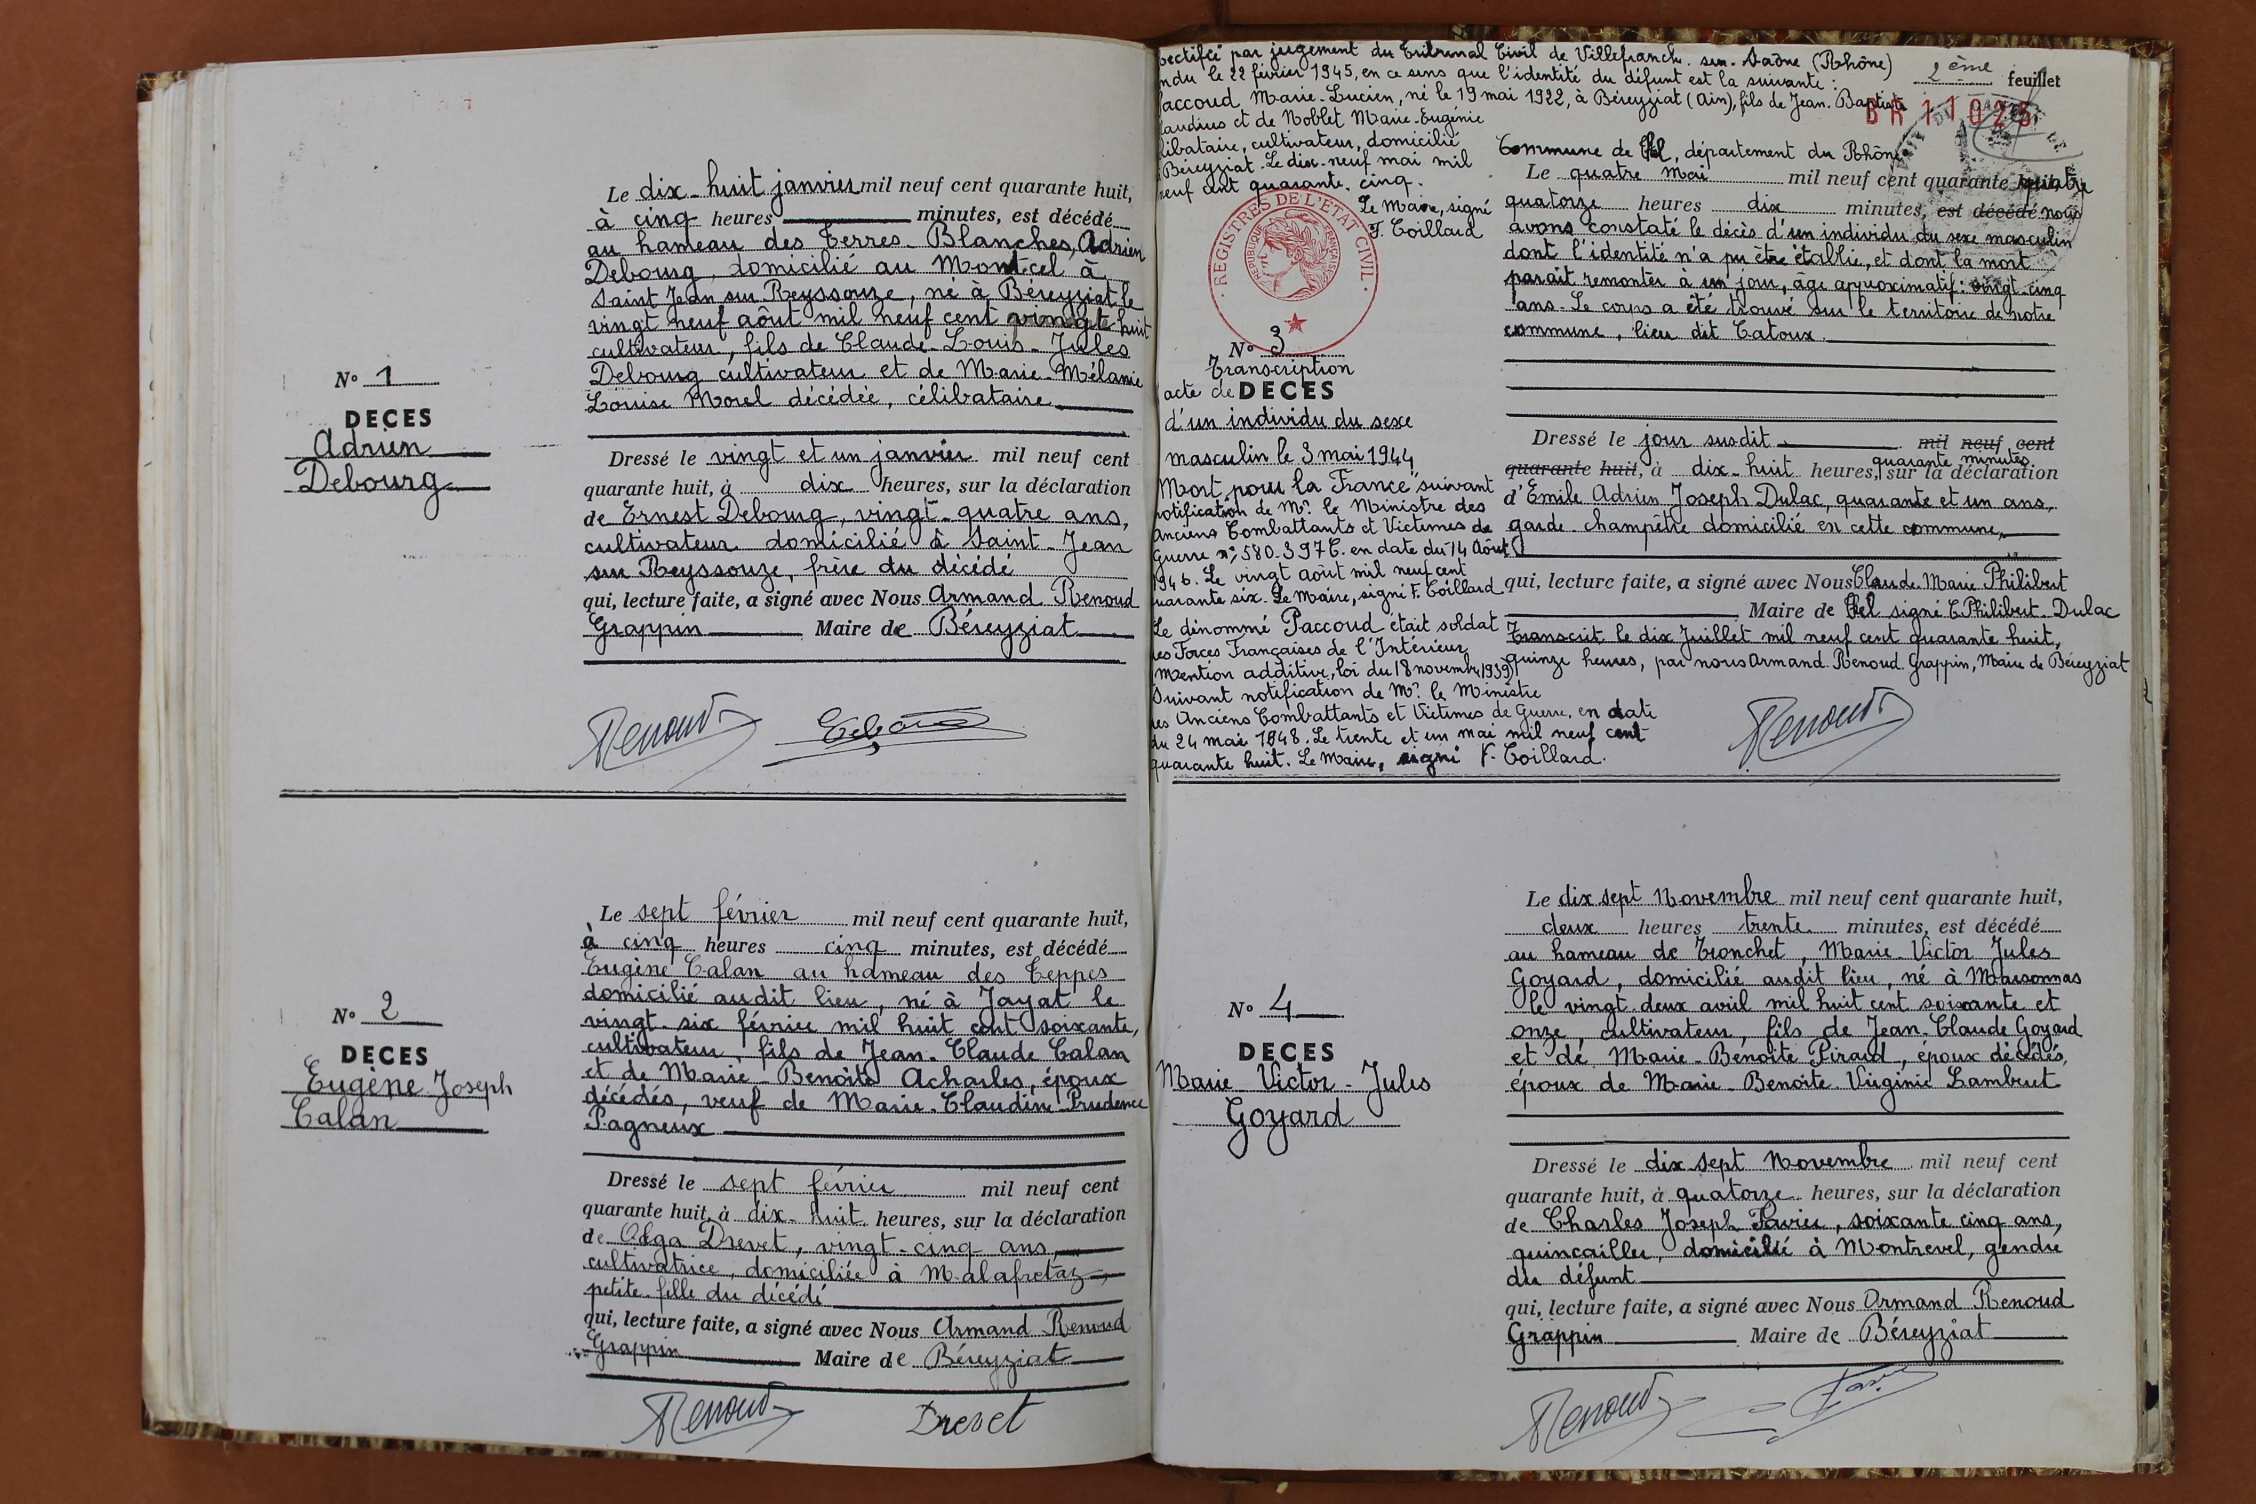 Le dix-huit janvier mil neuf cent quarante huit,
à cinq heures minutes, est décédé
au hameau des Terres-Blanches, Adrien
Debourg, domicilié au Montcel à
Saint Jean sur Reyssouze, né à Béreyziat le
vingt neuf août mil neuf cent vingt huit
cultivateur, fils de Claude-Louis-Jules
Debourg cultivateur et de Marie-Mélanie
Louise Morel décédée, célibataire
N° 1
DECES
Adrien
Debourg
Dressé le vingt et un janvier mil neuf cent
quarante huit, à dix heures, sur la déclaration
de Ernest Debourg, vingt-quatre ans,
cultivateur domicilié à Saint-Jean
sur Reyssouze, frère du décédé
qui, lecture faite, a signé avec Nous Armand Renoud
Grappin Maire de Béreyziat
Renoud
Le sept février mil neuf cent quarante huit,
à cinq heures cinq minutes, est décédé
Eugène Calan au hameau des Teppes
domicilié audit lieu, né à Jayat le
vingt-six février mil huit cent soixante,
cultivateur, fils de Jean-Claude Calan
et de Marie-Benoîte Acharles, époux
décédés, veuf de Marie-Claudine-Prudence
Pagneux
N° 2
DECES
Eugène Joseph
Calan
Dressé le sept février mil neuf cent
quarante huit, à dix-huit heures, sur la déclaration
de Olga Drevet, vingt-cinq ans,
cultivatrice, domiciliée à Malafretaz,
petite-fille du décédé
qui, lecture faite, a signé avec Nous Armand Renoud
Grappin Maire de Béreyziat
Renoud Drevet
rectifié par jugement du Tribunal Civil de Villefranche-sur-Saône (Rhône)
ndu le 22 février 1945, en ce sens que l'identité du défunt est la suivante:
accoud Marie-Lucien, né le 19 mai 1922, à Béreyziat (Ain), fils de Jean-Baptiste
laudius et de Noblet Marie-Eugénie
libataire, cultivateur, domicilié
Béreyziat. Le dix-neuf mai mil
neuf cent quarante-cinq.
Le Maire, signé
F. Coillard
REGISTRES DE L'ETAT CIVIL
REPUBLIQUE FRANÇAISE
2ème feuillet
BR 11025
N° 3
Transcription
acte de DECES
d'un individu du sexe
masculin le 3 mai 1944
"Mort pour la France" suivant
notification de Mr. le Ministre des
Anciens Combattants et Victimes de
Guerre n°: 580-397C. en date du 14 Août
1946. Le vingt août mil neuf cent
quarante six. Le Maire, signé F. Coillard
Le dénommé Paccoud était soldat
des Forces Françaises de l'Intérieur
Mention additive, loi du 18 novembre 1939)
Suivant notification de Mr. le Ministre
des Anciens Combattants et Victimes de Guerre, en date
du 24 mai 1948. Le trente et un mai mil neuf cent
quarante huit. Le Maire, signé F. Coillard.
Commune de , département du Rhône
Le quatre Mai mil neuf cent quarante quatre
quatorze heures dix minutes, est décédé nous
avons constaté le décès d'un individu du sexe masculin
dont l'identité n'a pu être établie, et dont la mort
paraît remonter à un jour, âge approximatif: vingt-cinq
ans. Le corps a été trouvé sur le territoire de notre
commune, lieu dit Catoux.
Dressé le jour susdit mil neuf cent
quarante huit, à dix-huit heures, quarante minutes, sur la déclaration
d'Emile Adrien Joseph Dulac, quarante et un ans,
garde-champêtre domicilié en cette commune,
qui, lecture faite, a signé avec Nous Claude Marie Philibert
Maire de signé C Philibert. Dulac
Transcrit le dix Juillet mil neuf cent quarante huit,
quinze heures, par nous Armand Renoud Grappin, Maire de Béreyziat
Renoud
Le dix sept Novembre mil neuf cent quarante huit,
deux heures trente minutes, est décédé
au hameau de Tronchet, Marie-Victor Jules
Goyard, domicilié audit lieu, né à Marsonnas
le vingt-deux avril mil huit cent soixante et
onze, cultivateur, fils de Jean-Claude Goyard
et de Marie-Benoite Pirard, époux décédés,
époux de Marie-Benoite-Virginie Lambert
N° 4
DECES
Marie-Victor-Jules
Goyard
Dressé le dix sept Novembre mil neuf cent
quarante huit, à quatorze heures, sur la déclaration
de Charles Joseph Favier, soixante cinq ans,
quincailler, domicilié à Montrevel, gendre
du défunt
qui, lecture faite, a signé avec Nous Armand Renoud
Grappin Maire de Béreyziat
Renoud